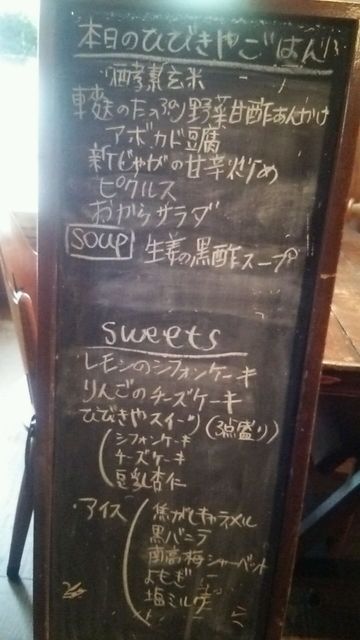 本日のひびきやごはん
酒酵素玄米
車麩のたっぷり野菜甘酢あんかけ
アボカド豆腐
新じゃがの甘辛炒め
ピクルス
おからサラダ
soup 生姜の黒酢スープ
sweets
レモンのシフォンケーキ
りんごのチーズケーキ
ひびきやスイーツ(3点盛り)
シフォンケーキ
チーズケーキ
豆乳杏仁
・アイス
焦がしキャラメル
黒バニラ
南高梅シャーベット
よもぎ
塩ミルク